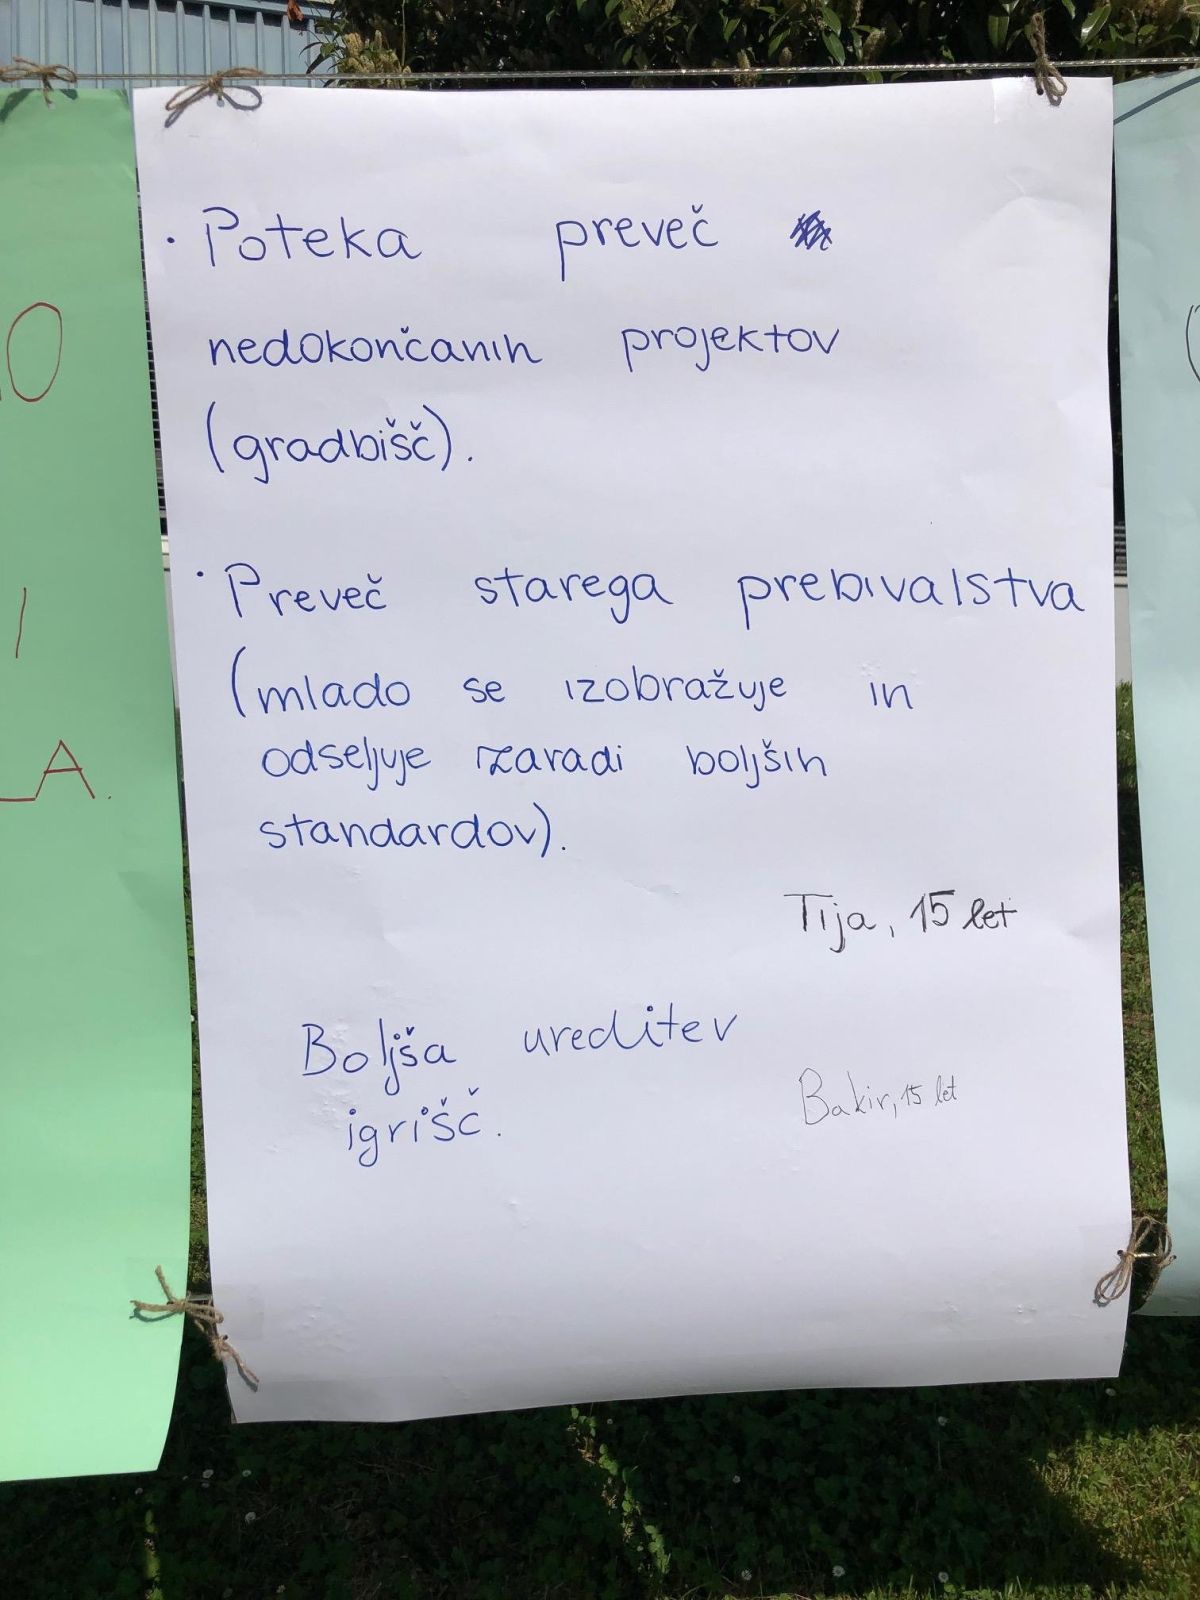 · Poteka preveč
nedokončanih projektov
(gradbišč).
· Preveč starega prebivalstva
(mlado se izobražuje in
odseljuje zaradi boljših
standardov).
Tija, 15 let
Boljša ureditev
igrišč.
Bakir, 15 let
O
I
LA.